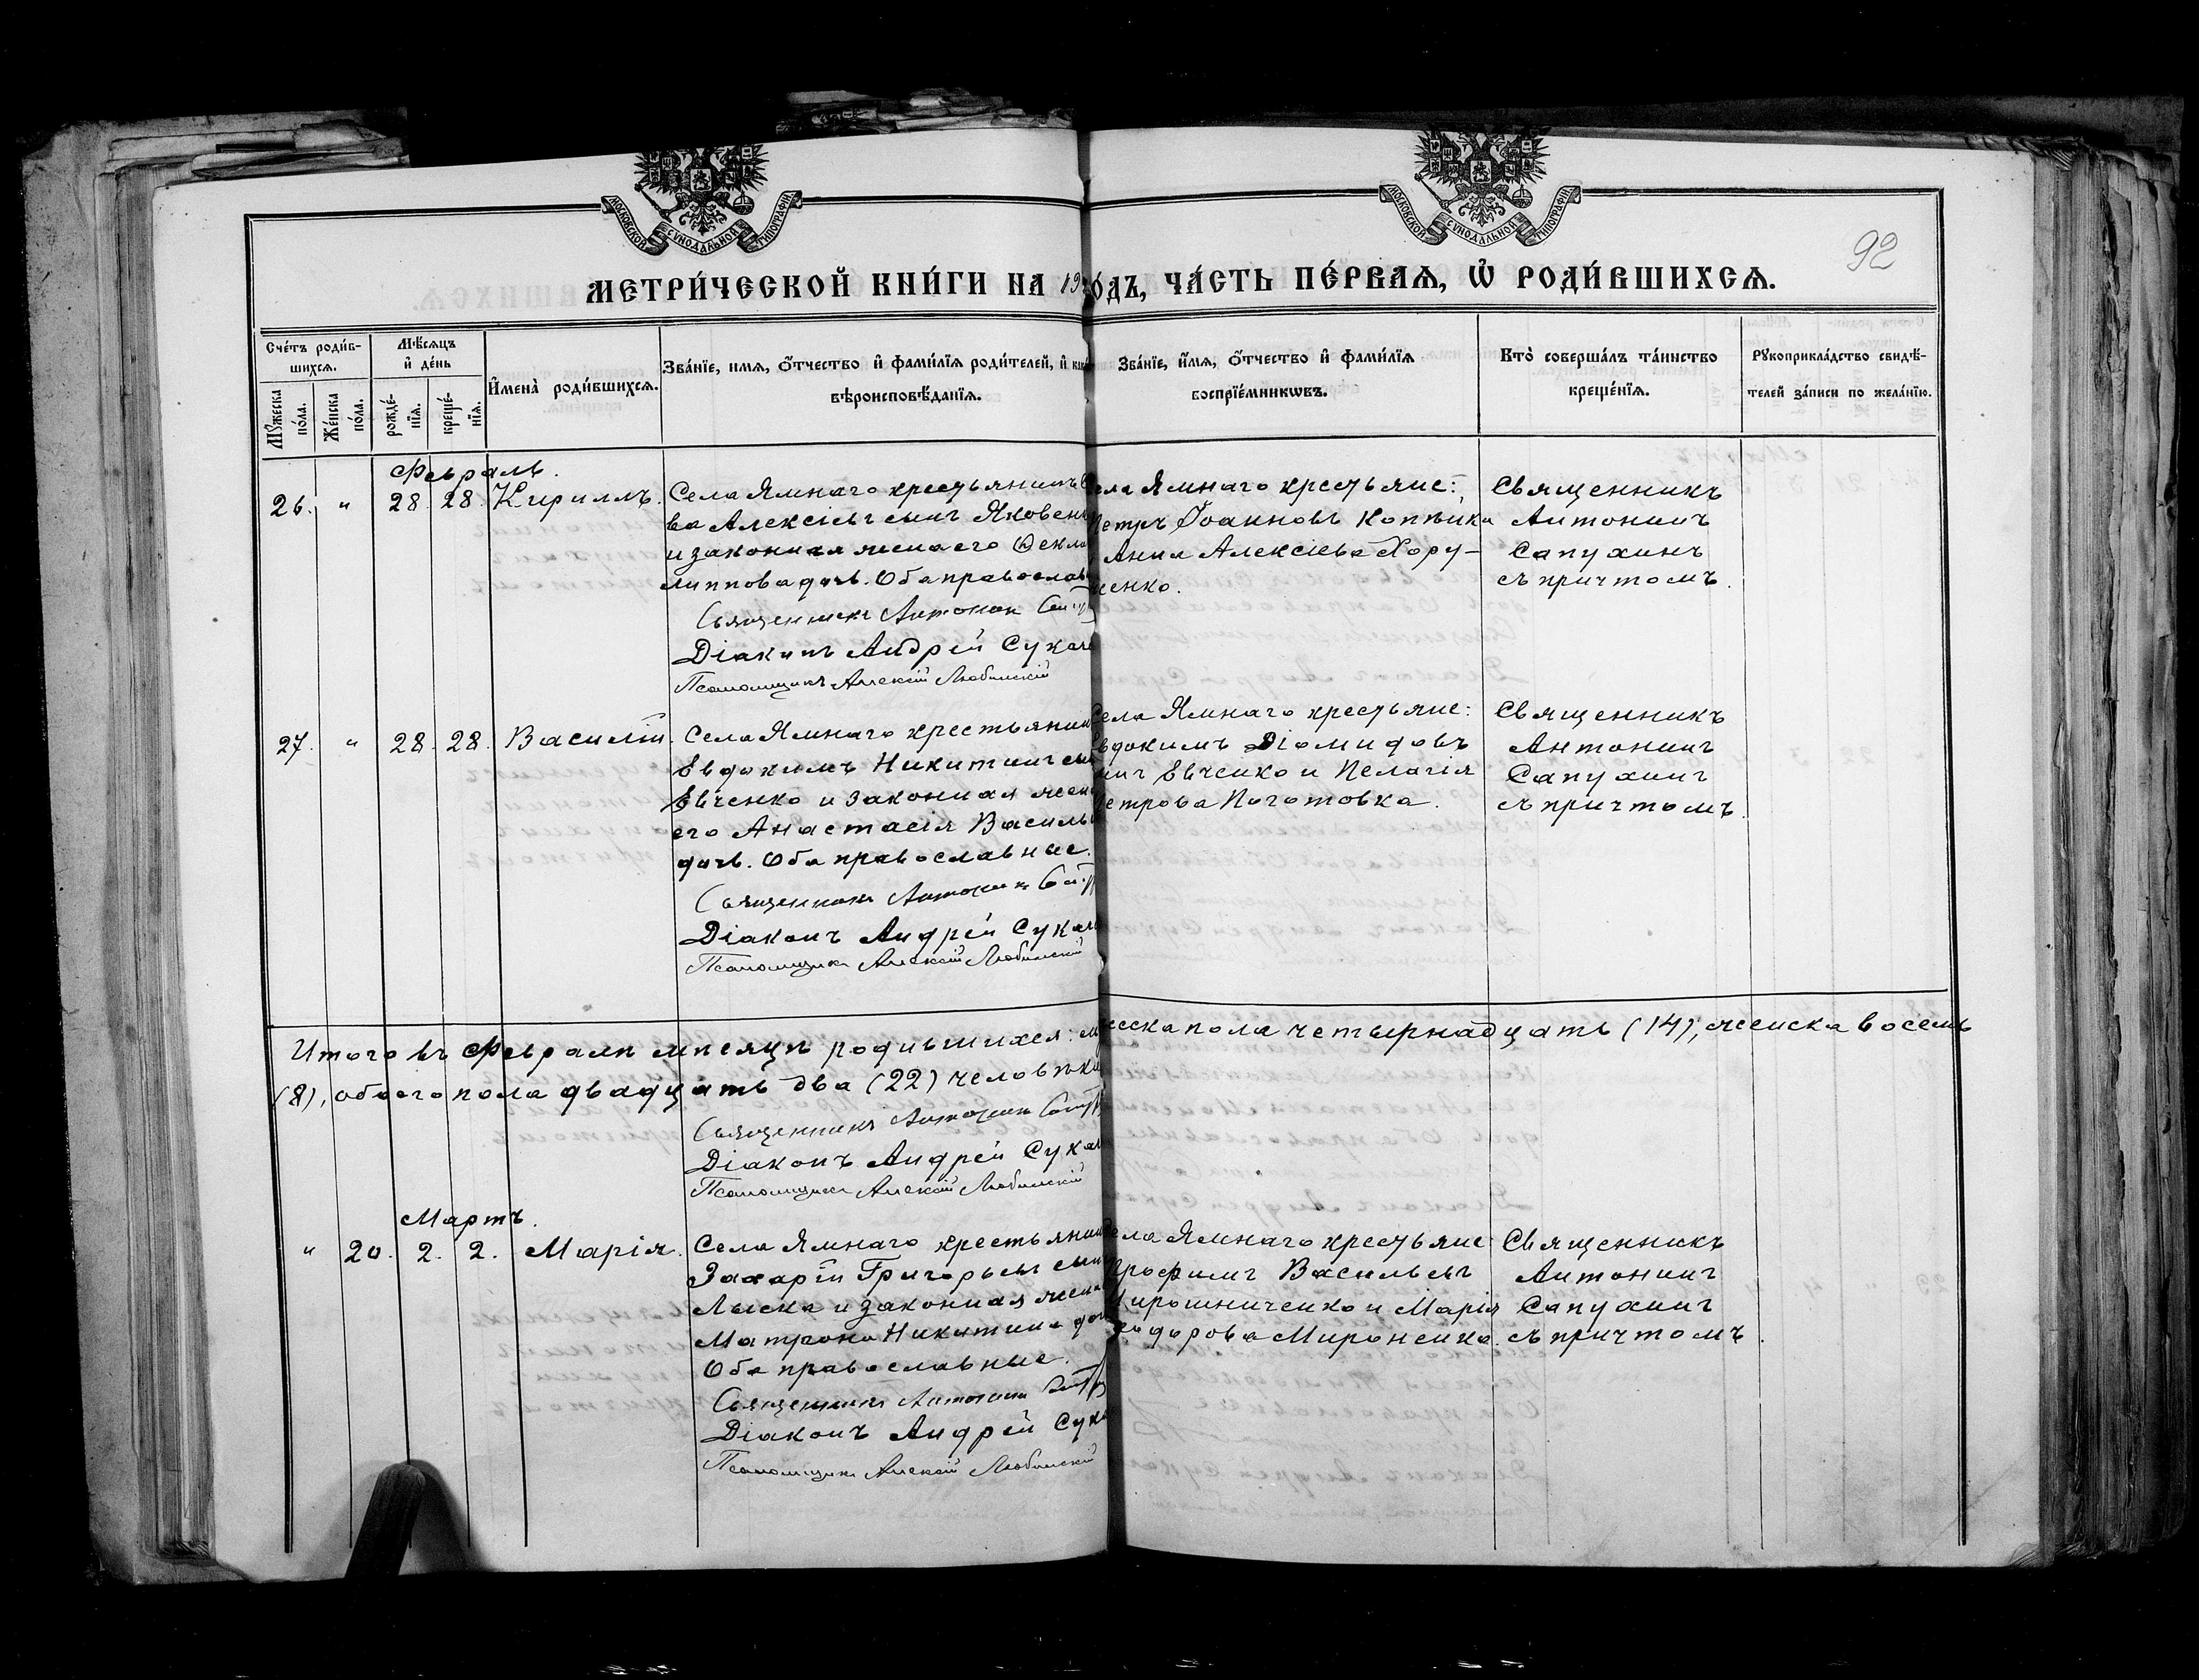 МОСКОВСКОЙ СѴНОДАЛЬНОЙ ТИПОГРАФІИ
МОСКОВСКОЙ СѴНОДАЛЬНОЙ ТИПОГРАФІИ
92
МЕТРИ́ЧЕСКОЙ КНИ́ГИ НА 19 О́ДЪ, ЧА́СТЬ ПЕ́РВАѦ, Ѡ РОДИ́ВШИХСѦ.
Сче́тъ роди́в-
шихсѧ.
Мꙋ́жеска по́ла.
Же́нска по́ла.
Мѣ́сѧцъ
и҆ де́нь
рожде́-
нїѧ.
креще́-
нїѧ.
И҆мена̀ роди́вшихсѧ.
Зва́нїе, имѧ, ѻ҆́тчество и҆ фами́лїѧ роди́телей, и҆
вѣроисповѣ́данїѧ.
Зва́нїе, и҆́мѧ, ѻ҆́тчество и҆ фами́лїѧ
воспрїе́мникѡвъ.
Кто̀ соверша́лъ та́инство
креще́нїѧ.
Рꙋкоприкла́дство свидѣ́-
телей за́писи по жела́нїю.
Февраль.
26. " 28. 28. Кириллъ. Села Ямнаго крестьянинъ
ва Алексіевъ сынъ Яковен
и законная жена его Ѳекла
липпова дочь. Оба православ
Священникъ Антонин
Діаконъ Андрей Сукач
Псаломщикъ Алексій Любинскій
ела Ямнаго крестьяне:
Петръ Іоанновъ Коппика
Анна Алексіева Хору-
женко.
Священникъ
Антонинъ
Сапухинъ
съ причтомъ.
27. " 28. 28. Василій. Села Ямнаго крестьянин
Евдокимъ Никитинъ сын
Евченко и законная жена
его Анастасія Василь
дочь. Оба православные.
Священникъ Антонин
Діаконъ Андрей Сукач
Псаломщикъ Алексій Любинскій
Села Ямнаго крестьяне:
Евдокимъ Діомидовъ
инъ Евченко и Пелагія
Петрова Поготовка.
Священникъ
Антонинъ
Сапухинъ
съ причтомъ.
Итого въ Февралѣ мѣсяцѣ родившихся: м жеска пола четырнадцать (14), женска восемь
(8), обоего пола двадцать два (22) человѣка
Священникъ Антонин
Діаконъ Андрей Сукач
Псаломщикъ Алексій Любинскій
Мартъ.
" 20. 2. 2. Марія. Села Ямнаго крестьянин
Захарій Григорьевъ сынъ
Лыска и законная жена
Матрона Никитина доч
Оба православные.
Священникъ Антонин
Діаконъ Андрей Сука
Псаломщикъ Алексій Любинскій
Села Ямнаго крестьяне
Трофимъ Васильевъ
Мирошниченко и Марія
Ѳеодорова Мироненко.
Священникъ
Антонинъ
Сапухинъ
съ причтомъ.